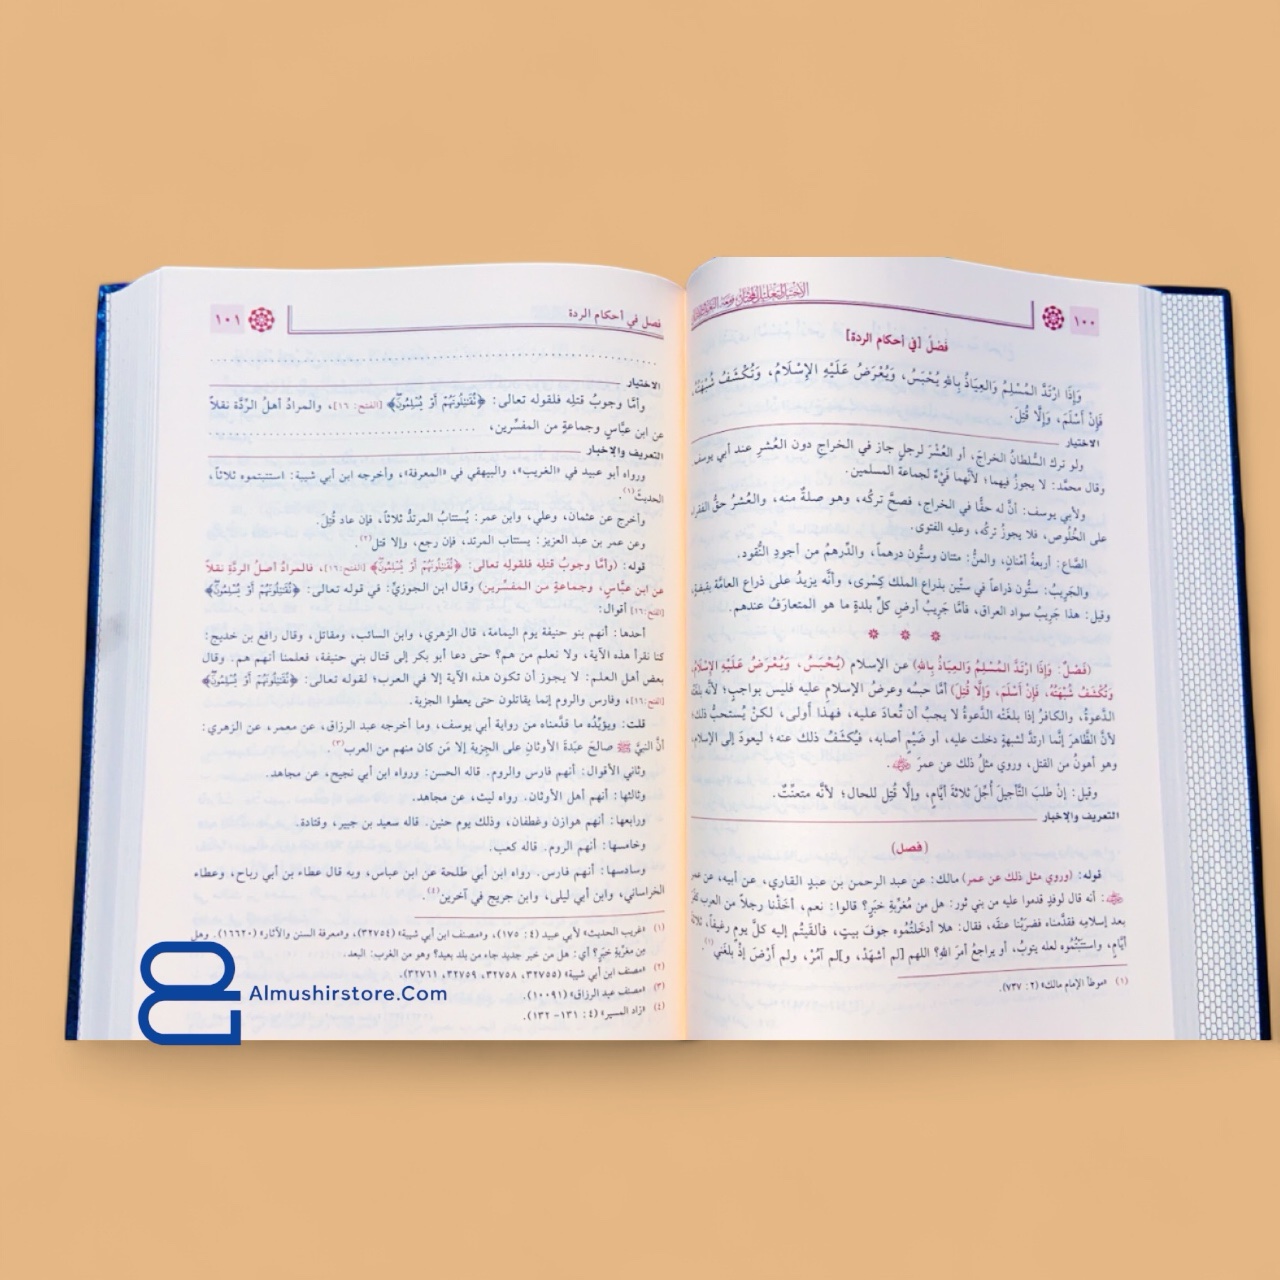 ١٠٠
الاختيار لتعليل المختار ومعه التعريف والإخبار
فَصْلٌ [في أحكام الردة]
وَإِذَا ارْتَدَّ المُسْلِمُ وَالعِيَاذُ بِاللهِ يُحْبَسُ، وَيُعْرَضُ عَلَيْهِ الإِسْلَامُ، وَتُكْشَفُ شُبْهَتُهُ،
فَإِنْ أَسْلَمَ، وَإِلَّا قُتِلَ.
الاختيار
ولو ترك السُّلطانُ الخراجَ، أو العُشْرَ لرجلٍ جاز في الخراجِ دون العُشرِ عند أبي يوسف
وقال محمَّد: لا يجوزُ فيهما؛ لأنَّهما فَيْءٌ لجماعة المسلمين.
ولأبي يوسف: أنَّ له حقًّا في الخراج، فصحَّ تركُه، وهو صلةٌ منه، والعُشرُ حقُّ الفقراء
على الخُلُوص، فلا يجوزُ تركُه، وعليه الفتوى.
الصَّاع: أربعةُ أمْنانٍ، والمنُّ: مئتان وستُّون درهماً، والدِّرهمُ من أجودِ النُّقود.
والجَرِيبُ: ستُّون ذراعاً في ستِّين بذراع الملك كِسْرى، وأنَّه يزيدُ على ذراع العامَّة بقبضةٍ،
وقيل: هذا جَرِيبُ سواد العراق، فأمَّا جَرِيبُ أرضِ كلِّ بلدةٍ ما هو المتعارَفُ عندهم.
(فَصْلٌ: وَإِذَا ارْتَدَّ المُسْلِمُ وَالعِيَاذُ بِاللهِ) عن الإسلام (يُحْبَسُ، وَيُعْرَضُ عَلَيْهِ الإِسْلَامُ،
وَتُكْشَفُ شُبْهَتُهُ، فَإِنْ أَسْلَمَ، وَإِلَّا قُتِلَ) أمَّا حبسُه وعرضُ الإسلامِ عليه فليس بواجبٍ؛ لأنَّه بلغَتْه
الدَّعوةُ، والكافرُ إذا بلغَتْه الدَّعوةُ لا يجبُ أن تُعادَ عليه، فهذا أَولى، لكنْ يُستحبُّ ذلك؛
لأنَّ الظَّاهرَ إنَّما ارتدَّ لشبهةٍ دخلت عليه، أو ضَيْمٍ أصابه، فيُكْشَفُ ذلك عنه؛ ليعودَ إلى الإسلامِ،
وهو أهونُ من القتل، وروي مثلُ ذلك عن عمرَ ﷺ.
وقيل: إنْ طلبَ التَّأجيلَ أُجِّلَ ثلاثةَ أيَّامٍ، وإلَّا قُتِلَ للحال؛ لأنَّه متعنِّتٌ.
التعريف والإخبار
(فصل)
قوله: (وروي مثل ذلك عن عمر) مالك: عن عبد الرحمن بن عبدٍ القاري، عن أبيه، عن عمر
: أنه قال لوفدٍ قدموا عليه من بني ثور: هل من مُغَرِّبةِ خَبَرٍ؟ قالوا: نعم، أخَذْنا رجلاً من العرب كفر
بعد إسلامِهِ فقدَّمناه فضربْنا عنقَه، فقال: هلا أدخلتُمُوه جوفَ بيتٍ، فألقَيتُم إليه كلَّ يوم رغيفاً، ثلاثة
أيَّامٍ، واستَتَبْتُموه لعله يتوبُ، أو يراجعُ أمرَ اللهِ؟ اللهم [لم أَشهَدْ، و]لم آمُرْ، ولم أَرْضَ إذْ بلغَني(١).
(١) «موطأ الإمام مالك» (٢: ٧٣٧).
فصل في أحكام الردة
١٠١
الاختيار
وأمَّا وجوبُ قتلِه فلقولِه تعالى: ﴿نُقَٰتِلُونَهُمْ أَوْ يُسْلِمُونَ﴾ [الفتح: ١٦]، والمرادُ أهلُ الرِّدَّة نقلاً
عن ابن عبَّاسٍ وجماعةٍ من المفسِّرين،
التعريف والإخبار
ورواه أبو عبيد في «الغريب»، والبيهقي في «المعرفة»، وأخرجه ابن أبي شيبة: استتبتموه ثلاثاً،
الحديثَ(١).
وأخرج عن عثمان، وعلي، وابن عمر: يُستتابُ المرتدُّ ثلاثاً، فإن عاد قُتِلَ.
وعن عمر بن عبد العزيز: يستتاب المرتد، فإن رجع، وإلا قتل(٢).
قوله: (وأمَّا وجوبُ قتلِه فلقولِه تعالى: ﴿نُقَٰتِلُونَهُمْ أَوْ يُسْلِمُونَ﴾ [الفتح:١٦]، فالمرادُ أصلُ الردَّةِ نقلاً
عن ابن عبَّاسٍ، وجماعةٍ من المفسِّرين) وقال ابن الجوزيّ: في قوله تعالى: ﴿نُقَٰتِلُونَهُمْ أَوْ يُسْلِمُونَ﴾
[الفتح:١٦] أقوال:
أحدها: أنهم بنو حنيفة يوم اليمامة، قال الزهري، وابن السائب، ومقاتل، وقال رافع بن خديج:
كنا نقرأ هذه الآية، ولا نعلم من هم؟ حتى دعا أبو بكر إلى قتال بني حنيفة، فعلمنا أنهم هم. وقال
بعض أهل العلم: لا يجوز أن تكون هذه الآية إلا في العرب؛ لقوله تعالى: ﴿نُقَٰتِلُونَهُمْ أَوْ يُسْلِمُونَ﴾
[الفتح:١٦]، وفارس والروم إنما يقاتلون حتى يعطوا الجزية.
قلت: ويؤيِّدُه ما قدَّمناه من رواية أبي يوسف، وما أخرجه عبد الرزاق، عن معمر، عن الزهري:
أنَّ النبيَّ ﷺ صالحَ عبَدَةَ الأوثانِ على الجِزية إلا مَن كان منهم من العرب(٣).
وثاني الأقوال: أنهم فارس والروم. قاله الحسن: ورواه ابن أبي نجيح، عن مجاهد.
وثالثها: أنهم أهل الأوثان. رواه ليث، عن مجاهد.
ورابعها: أنهم هوازن وغطفان، وذلك يوم حنين. قاله سعيد بن جبير، وقتادة.
وخامسها: أنهم الروم. قاله كعب.
وسادسها: أنهم فارس. رواه ابن أبي طلحة عن ابن عباس، وبه قال عطاء بن أبي رباح، وعطاء
الخراساني، وابن أبي ليلى، وابن جريج في آخرين(٤).
(١) «غريب الحديث» لأبي عبيد (٤: ١٧٥)، و«مصنف ابن أبي شيبة» (٣٢٧٥٤)، و«معرفة السنن والآثار» (١٦٦٢٠). وهل
مِن مغرِّبةِ خبَرٍ؟ أي: هل من خبر جديد جاء من بلد بعيد؟ وهو من الغرب: البعد.
(٢) «مصنف ابن أبي شيبة» (٣٢٧٥٥، ٣٢٧٥٨، ٣٢٧٥٩، ٣٢٧٦١).
(٣) «مصنف عبد الرزاق» (١٠٠٩١).
(٤) «زاد المسير» (٤: ١٣١- ١٣٢).
Almushirstore.Com